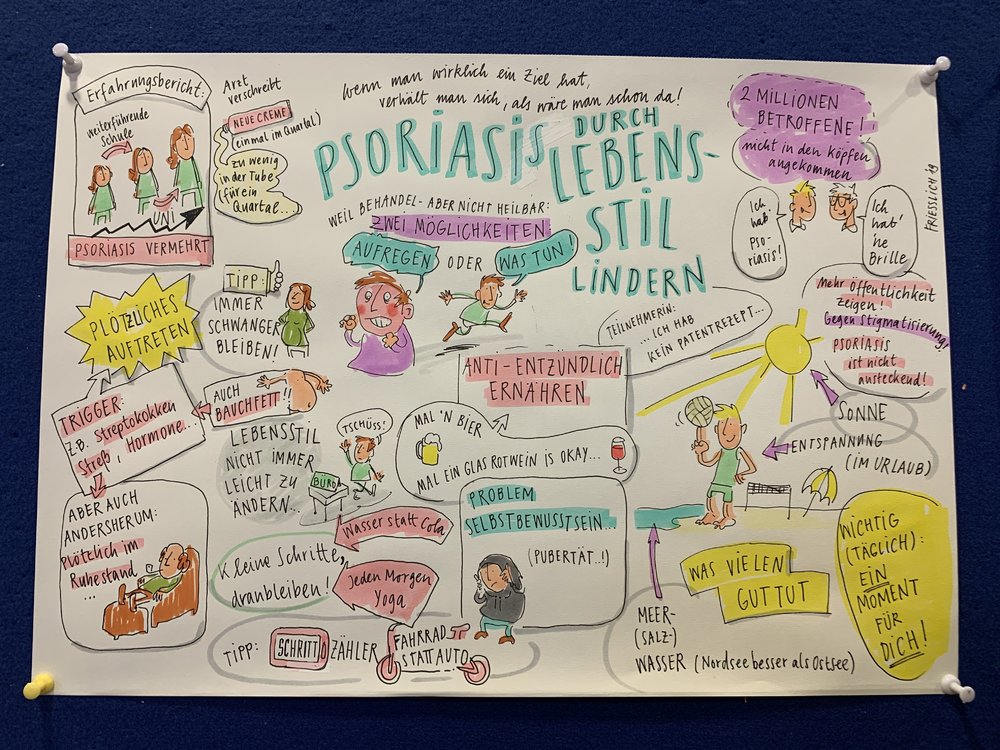 Erfahrungsbericht:
weiterführende
Schule
UNI
PSORIASIS VERMEHRT
Arzt
verschreibt
NEUE CREME
(einmal im Quartal)
zu wenig
in der Tube
(für ein
Quartal...
Wenn man wirklich ein Ziel hat,
verhält man sich, als wäre man schon da!
PSORIASIS DURCH
LEBENS-
STIL
LINDERN
WEIL BEHANDEL- ABER NICHT HEILBAR:
ZWEI MÖGLICHKEITEN
AUFREGEN ODER WAS TUN!
2 MILLIONEN
BETROFFENE!
nicht in den Köpfen
angekommen
FRIESSLICH '19
Ich
hab
Pso-
riasis!
Ich
hab'
'ne
Brille
Mehr Öffentlichkeit
zeigen!
Gegen Stigmatisierung!
PSORIASIS
ist nicht
ansteckend!
PLÖTZLICHES
AUFTRETEN
TIPP:
IMMER
SCHWANGER
BLEIBEN!
TEILNEHMERIN:
...ICH HAB
KEIN PATENTREZEPT...
ANTI-ENTZÜNDLICH
ERNÄHREN
MAL 'N BIER
MAL EIN GLAS ROTWEIN IS OKAY...
TRIGGER:
z.B. Streptokokken
Streß, Hormone...
AUCH
BAUCHFETT!!
LEBENSSTIL
NICHT IMMER
LEICHT ZU
ÄNDERN...
TSCHÜSS!
BÜRO
SONNE
ENTSPANNUNG
(IM URLAUB)
ABER AUCH
ANDERSHERUM:
Plötzlich im
Ruhestand
...
Wasser statt Cola
Kleine Schritte,
dranbleiben!
Jeden Morgen
Yoga
PROBLEM
SELBSTBEWUSSTSEIN...
(PUBERTÄT..!)
WAS VIELEN
GUT TUT
MEER-
(SALZ-)
WASSER (Nordsee besser als Ostsee)
WICHTIG
(TÄGLICH):
EIN
MOMENT
FÜR
DICH!
TIPP: SCHRITTZÄHLER FAHRRAD
STATT AUTO